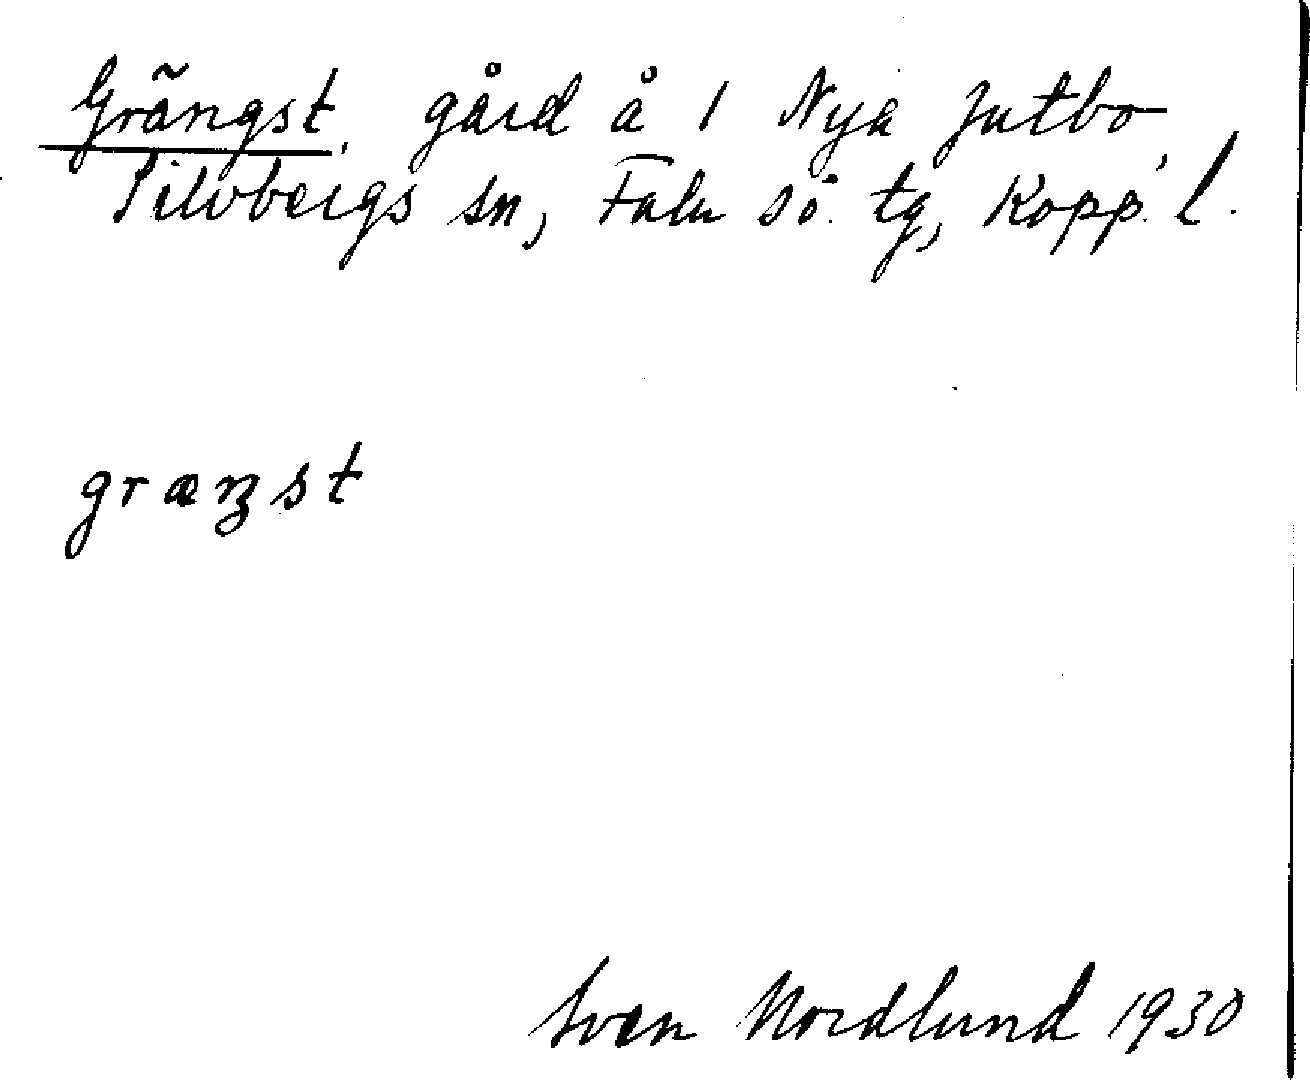 Grängst, gård å 1 Nya Jutbo,
Silvbergs sn, Falu sö. tg, Kopp. l.
græŋst
Sven Nordlund 1930